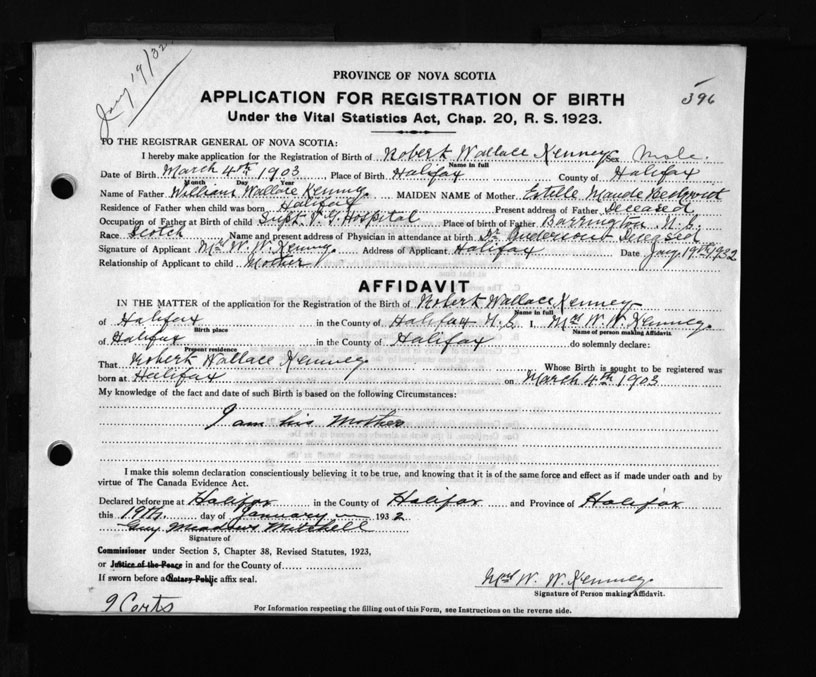 Jany 19/32
PROVINCE OF NOVA SCOTIA
APPLICATION FOR REGISTRATION OF BIRTH
396
Under the Vital Statistics Act, Chap. 20, R. S. 1923.
TO THE REGISTRAR GENERAL OF NOVA SCOTIA:
I hereby make application for the Registration of Birth of Robert Wallace Kenney Sex Male.
Name in full
Date of Birth March 4th 1903 Place of Birth Halifax County of Halifax
Month Day Year
Name of Father William Wallace Kenney MAIDEN NAME of Mother Estelle Maude
Residence of Father when child was born Halifax Present address of Father Deceased
Occupation of Father at Birth of child Supt. V. G. Hospital Place of birth of Father Barrington N.S.
Race Scotch Name and present address of Physician in attendance at birth Dr Anderson Deceased
Signature of Applicant Mrs W. W. Kenney Address of Applicant Halifax Date Jany. 19th 1932
Relationship of Applicant to child Mother
AFFIDAVIT
IN THE MATTER of the application for the Registration of the Birth of Robert Wallace Kenney
Name in full
of Halifax in the County of Halifax N.S I, Mrs W. W. Kenney.
Birth place Name of person making Affidavit
of Halifax in the County of Halifax do solemnly declare:
Present residence
That Robert Wallace Kenney Whose Birth is sought to be registered was
born at Halifax on March 4th 1903
My knowledge of the fact and date of such Birth is based on the following Circumstances:
I am his Mother
I make this solemn declaration conscientiously believing it to be true, and knowing that it is of the same force and effect as if made under oath and by
virtue of The Canada Evidence Act.
Declared before me at Halifax in the County of Halifax and Province of Halifax
this 19th day of January 1932
Guy Meadows Mitchell
Signature of
Commissioner under Section 5, Chapter 38, Revised Statutes, 1923,
or Justice of the Peace in and for the County of
If sworn before a Notary Public affix seal.
Mrs W. W. Kenney
Signature of Person making Affidavit.
9 Certs
For Information respecting the filling out of this Form, see Instructions on the reverse side.